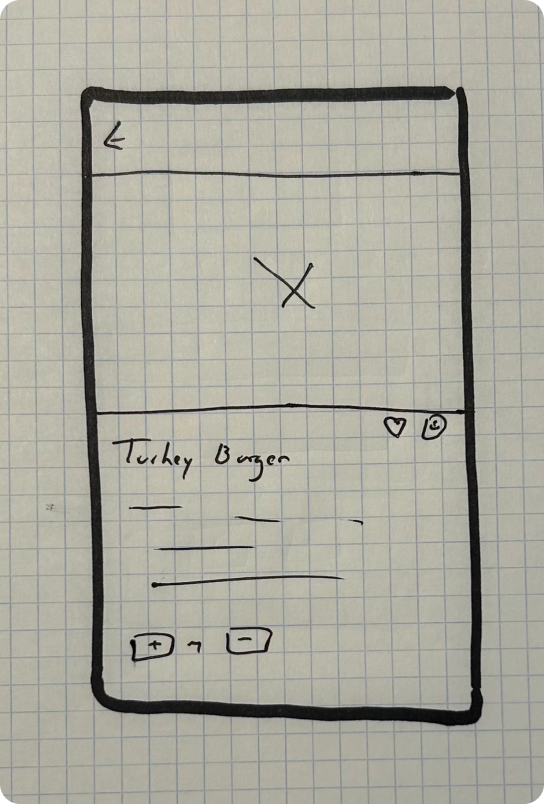 Turkey Burger
+ -